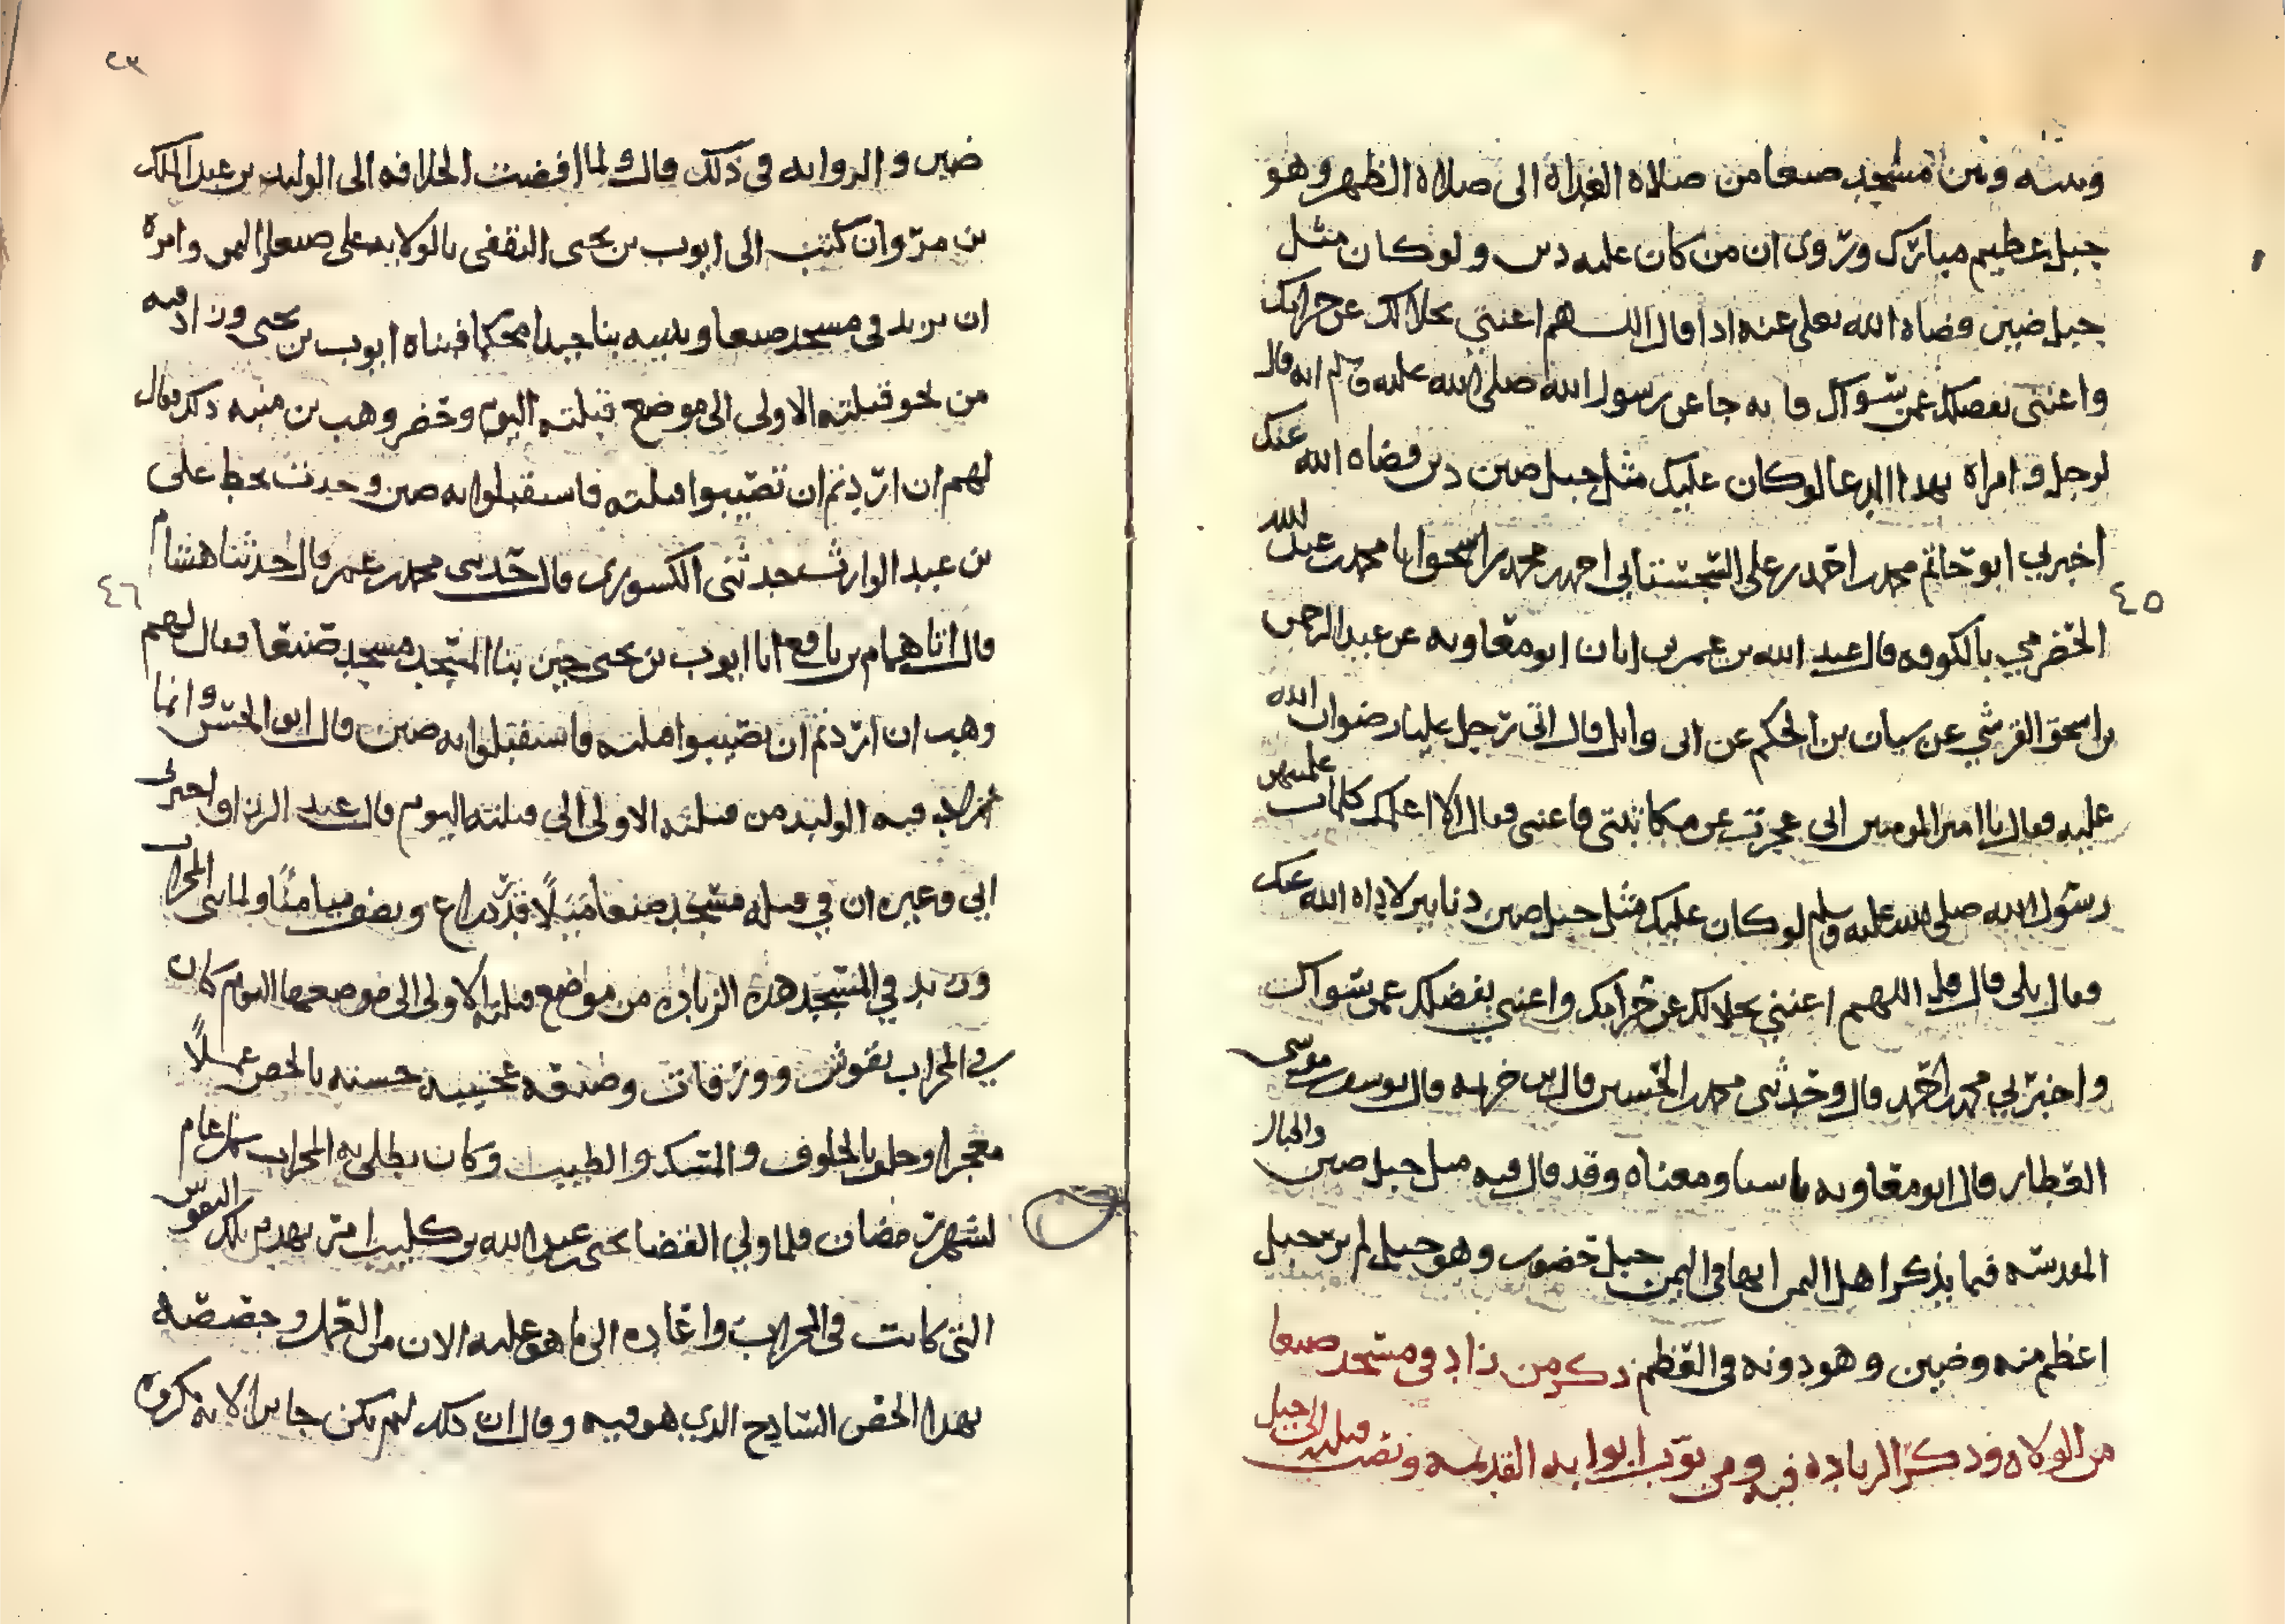 وبينه وبين مسجد صنعا من صلاة الغداة الى صلاة الظهر وهو
جبل عظيم مبارك وتروى ان من كان عليه دين ولو كان مثل
جبل ضين قضاه الله تعلى عنه اذا قال اللهم اغنني بحلالك عن حرامك
واغنني بفضلك عمن سواك فانه جا عن رسول الله صلى الله عليه وسلم انه قال
لرجل وامراه بهذا الدعا لو كان عليك مثل جبل ضين دين قضاه الله عنك
اخبرني ابو حاتم محمد بن احمد بن على السجستاني احمد بن محمد بن اسحق ابا محمد بن عبد الله
٤٥
الحضرمي بالكوفه قال عبد الله بن عمر بن ابان ابو معاويه عن عبد الرحمن
بن اسحق القرشي عن سيان بن الحكم عن ابى وايل قال اتى رجل عليا رضوان الله
عليه فقال يا امير المومنين انى عجزت عن مكاتبتي فاعنى فقال الا اعلمك كلمات علمنيهن
رسول الله صلى الله عليه وسلم لو كان عليك مثل جبل ضين دنانير لاداه الله عنك
فقال بلى قال قل اللهم اغنني بحلالك عن حرامك واغنني بفضلك عمن سواك
واخبرني محمد بن احمد قال وحدثني محمد بن الحسين قال بن خزيمه قال يوسف بن موسى
القطان قال ابو معاويه باسناده ومعناه وقد قال فيه مثل جبل ضين والجبال
المقدسه فيما يذكر اهل اليمن انها في اليمن جبل حضور وهو جبل لم ير جبل
اعظم منه وضين وهو دونه في العظم ذكر من زاد في مسجد صنعا
من الولاه وذكر الزياده فيه ومن بوب ابوابه القديمه ونصب قبلته الى جبل
٢٣
ضين والروايه في ذلك قال ولما افضت الخلافه الى الوليد بن عبد الملك
بن مروان كتب الى ايوب بن يحيى الثقفي بالولايه على صنعا واليمن وامره
ان يزيد في مسجد صنعا ويبنيه بنا جيدا محكما فبناه ايوب بن يحيى وزاد فيه
من نحو قبلته الاولى الى موضع قبلته اليوم وحضر وهب بن منبه ذلك فقال
لهم ان اردتم ان تنصبوا قبلته فاستقبلوا به ضين وحدث بخط على
بن عبد الوارث حدثني الكشوري قال حدثني محمد بن عمر قال حدثنا هشام
٤٦
قال انا همام بن نافع انا ايوب بن يحيى حين بنا المسجد مسجد صنعا فقال لهم
وهب ان اردتم ان تنصبوا قبلته فاستقبلوا به ضين قال ابو الحسن وانما
زاد فيه الوليد من قبلته الاولى الى قبلته اليوم قال عبد الرزاق اخبرني
ابي وغيره ان في قبله مسجد صنعا ميلا قدر ذراع ونصف ميامنا ولما بنى المحراب
وزيد في المسجد هذه الزياده من موضع قبلته الاولى الى موضعها اليوم كان
في المحراب نقوش وورقات وصنعه عجيبه حسنه بالجص عملا
معجرا وخلق بالخلوق والمسك والطيب وكان يطلى به المحراب كل عام
لشهر رمضان فلما ولي القضا يحيى بن عبد الله بن كليب امر بهدم تلك النقوش
التي كانت في المحراب واعاده الى ما هو عليه الان من العمل وجصصه
بهذا الجص الساذج الذي هو فيه وقال ان ذلك لم يكن جايزا لانه مكروه